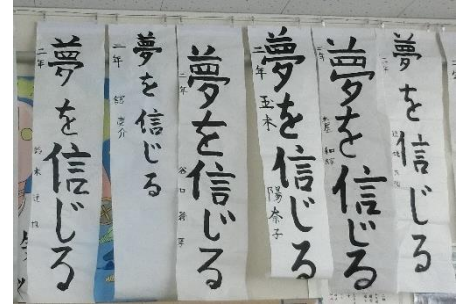 夢を信じる
二年
夢を信じる
二年
夢を信じる
二年
夢を信じる
二年
玉木
陽奈子
夢を信じる
二年
夢を信じる